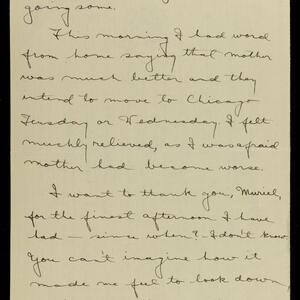 going some.
This morning I had word
from home saying that mother
was much better and they
intend to move to Chicago
Tuesday or Wednesday. I felt
muchly relieved, as I was afraid
mother had become worse.
I want to thank you, Muriel,
for the finest afternoon I have
had – since when? – I don't know.
You can't imagine how it
made me feel to look down